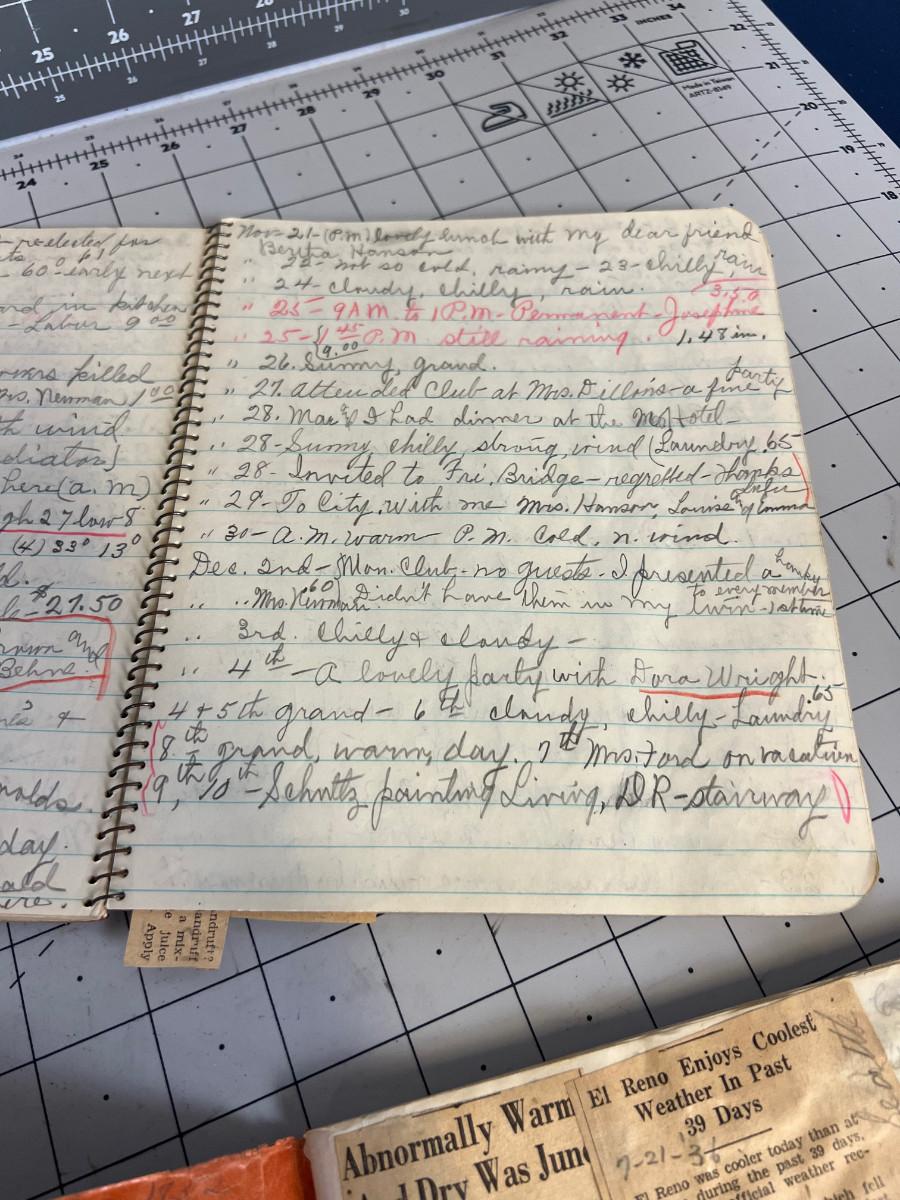 25 26 27
25 26 27 28 29 30
24 25 26 27 28 29 30 31 32 33 34
INCHES
22
21
20
19
18
Made in Taiwan
ARTZ-8149
re-elected for
60° early next
in kitchen
- Labor 9 00
killed
Mrs. Newman 1 00
wind
here (a.m)
27 low 8
(4) 33° 13°
$27.50
and
Behne.
&
day.
Nov-21-(P.M.) lovely lunch with my dear friend
Bertha Hanson
" 22-not so cold, rainy-23-chilly rain
" 24-cloudy, chilly, rain.
3.50
" 25-9AM. to 1P.M-Permanent-Josephine
" 25-1 45 P.M still raining. 1.48 in.
9.00
" 26. Sunny, grand.
" 27. Attended Club at Mrs. Dillins-a fine party
" 28. Mae & I had dinner at the Hotel-
" 28-Sunny chilly, strong, wind (Laundry .65
" 28-Invited to Fri. Bridge-regretted-Thanks
" 29-To City, with me Mrs. Hanson, Louise
" 30-A.M. warm P.M. Cold, n. wind.
Dec. 2nd-Mon. Club-no guests-I presented a hanky
to every member
" " Mrs. Newman .60 Didn't have them in my turn-1st time
" 3rd. Chilly & cloudy-
" 4th-A lovely party with Dora Wright.
4 + 5th grand-6th cloudy, chilly-Laundry .65
8th grand, warm, day. 7th Mrs. Ford on vacation
9th, 10th-Schultz painting Living, DR-stairway
ndruff?
andruff
a mix-
e juice
Apply
Abnormally Warm
And Dry Was June
El Reno Enjoys Coolest
Weather In Past
39 Days
7-21-36
El Reno was cooler today than at
during the past 39 days,
official weather rec-
fell